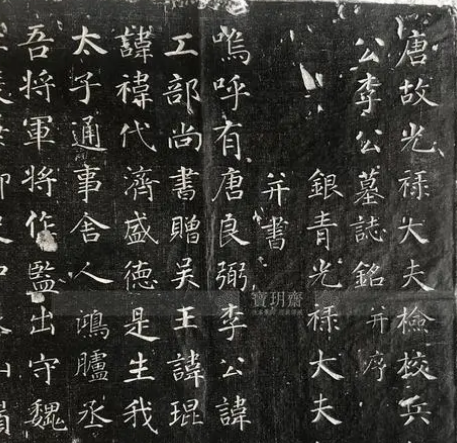 唐故光禄大夫檢校兵
公李公墓誌銘并序
銀青光禄大夫
并書
嗚呼有唐良弼李公諱
工部尚書贈吳王諱琨
諱禕代濟盛德是生我
太子通事舍人鴻臚丞
吾將軍將作監出守魏
寶玥齋